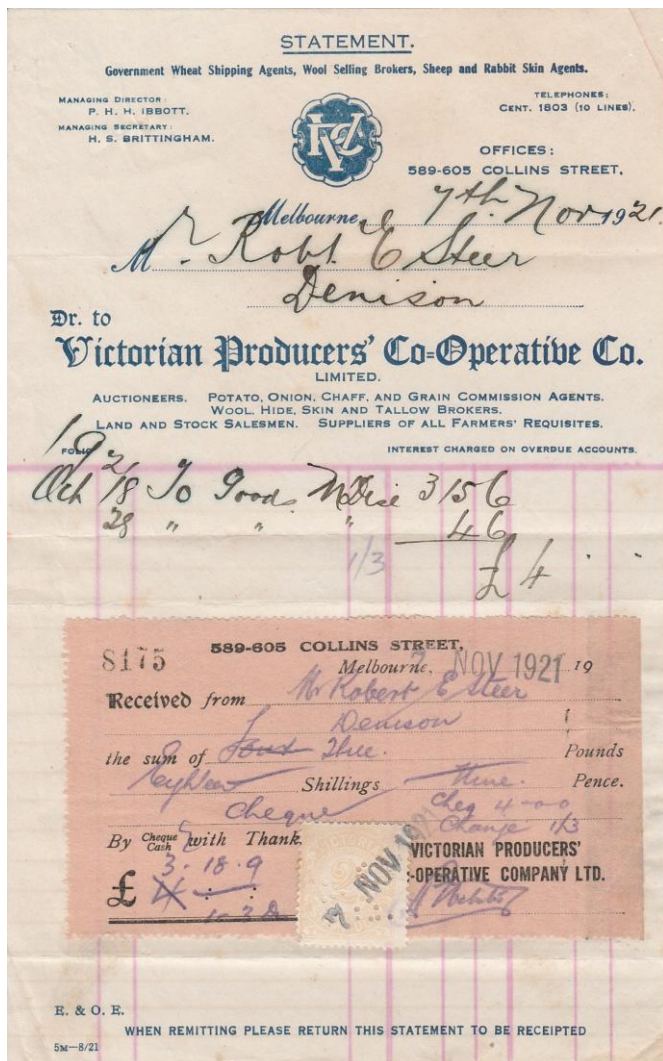 STATEMENT.
Government Wheat Shipping Agents, Wool Selling Brokers, Sheep and Rabbit Skin Agents.
MANAGING DIRECTOR:
P. H. H. IBBOTT.
MANAGING SECRETARY:
H. S. BRITTINGHAM.
TELEPHONES:
CENT. 1803 (10 LINES).
OFFICES:
589-605 COLLINS STREET,
Melbourne, 7th Nov 1921.
Mr Robt E Steer
Denison
Dr. to
Victorian Producers' Co=Operative Co.
LIMITED.
AUCTIONEERS. POTATO, ONION, CHAFF, AND GRAIN COMMISSION AGENTS.
WOOL, HIDE, SKIN AND TALLOW BROKERS.
LAND AND STOCK SALESMEN. SUPPLIERS OF ALL FARMERS' REQUISITES.
1921
FOLIO INTEREST CHARGED ON OVERDUE ACCOUNTS.
Oct 18 To Goods Mdise 3 15 6
28 " " " 4 6
1/3
£ 4 . .
8175
589-605 COLLINS STREET,
Melbourne, 7 NOV 1921 19
Received from Mr Robert E Steer
Denison
the sum of Four Three Pounds
Eighteen Shillings Nine Pence.
Cheque Cheq 4-0-0
Change 1/3
By Cheque Cash with Thank
7 NOV 1921
VICTORIAN PRODUCERS'
-OPERATIVE COMPANY LTD.
3. 18. 9
£ 4
1-3 D
E. & O. E.
WHEN REMITTING PLEASE RETURN THIS STATEMENT TO BE RECEIPTED
5M—8/21